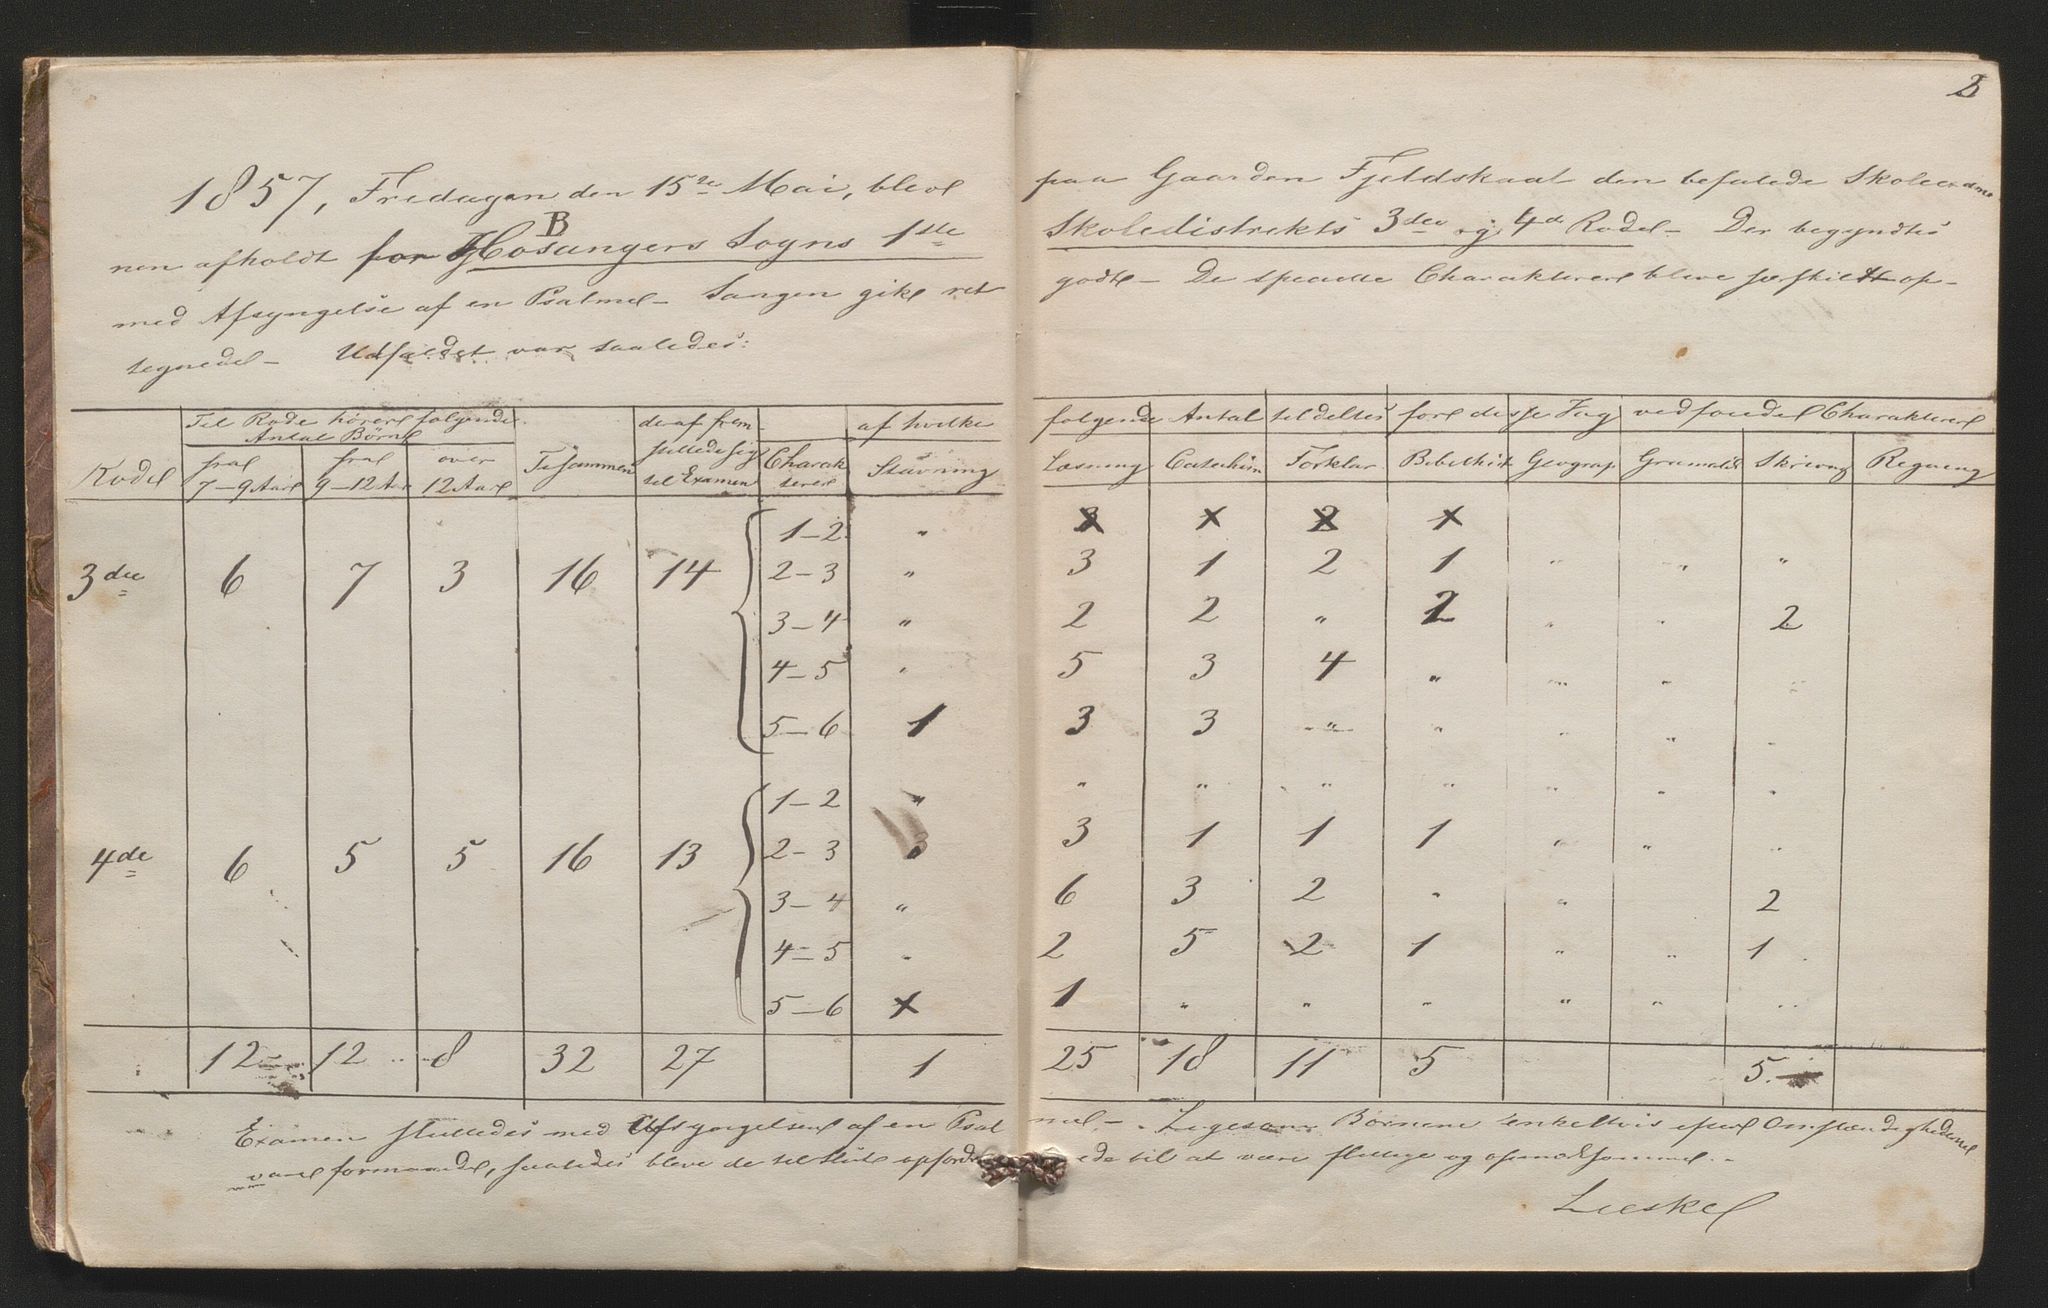 2
1857, Fredagen den 15de Mai, blev paa Gaarden Fjeldskaal den befalede Skoleexame
nen afholdt for Hosangers Sogns 1ste Skoledistrikts 3die og 4de Rode. Der begyndtes
B
med Afsyngelse af en Psalme. Sangen gik ret godt. De specielle Charakterer bleve særskilt op-
tegnede. Udfaldet var saaledes:
Til Rode hører følgende Antal Børn deraf frem- af hvilke følgende Antal tildeltes for disse Fag vedføiede Charakterer
Rode fra 7-9 Aar fra 9-12 Aar over 12 Aar Tilsammen stillede sig til Examen Charakterer Stavning Læsning Catechism Forklar. Bibelhist Geograf Gramatik Skrivng Regning
1-2 " x x x x
3die 6 7 3 16 14 2-3 " 3 1 2 1 " " "
3-4 " 2 2 " 2 " " 2
4-5 " 5 3 4 " " " "
5-6 1 3 3 " " " " "
1-2 " " " " " " " "
4de 6 5 5 16 13 2-3 3 1 1 1 " " "
3-4 " 6 3 2 " " 2
4-5 " 2 5 2 1 " " 1
5-6 x 1 " " " " " "
12 12 8 32 27 1 25 18 11 5 5
Examen sluttedes med Afsyngelsen af en Psalme. Ligesom Børnene enkeltvis efter Omstændighederne
vare formanede, saaledes bleve de til Slut opfordrede til at være flittige og opmærksomme.